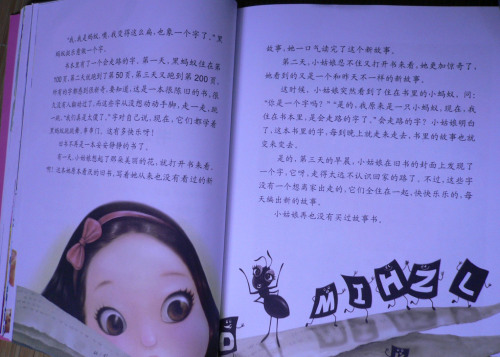 "我,我是蚂蚁,噢,我变得这么扁,也象一个字了。"黑
蚂蚁快乐要做一个字。
书本里有了一个会走路的字。第一天,黑蚂蚁住在第
100页,第二天他跑到了第50页,第三天又跑到第200页。
所有的字都感到很新奇。要知道,这是一本很陈旧的书,很
久没有人翻动过了,而这些字从没想动动手脚,走一走,跑
一跑。"我们真是太傻了。"字对自己说。现在,它们都学着
黑蚂蚁跳跳舞,串串门,这有多快乐呀!
旧书不再是一本安安静静的书了。
有一天,小姑娘想起了那朵美丽的花,就打开书来看。
啊!这本她原本看厌的旧书,写着她从来也没有看过的新
故事。她一口气读完了这个新故事。
第二天,小姑娘忍不住又打开书来看,她更加惊奇了,
她看到的又是一个和昨天不一样的新故事。
这时候,小姑娘突然看到了住在书里的小蚂蚁,问:
"你是一个字吗?""是的,我原来是一只小蚂蚁,现在,我
住在书本里,是会走路的字了。"会走路的字?小姑娘明白
了,这本书里的字,每到晚上就走来走去,书里的故事也就
变来变去。
是的,第三天的早晨,小姑娘在旧书的封面上发现了
一个字,它呀,走得太远不认识回家的路了。不过,这些字
没有一个想离家出走的,它们全住在一起,快快乐乐的,每
天编出新的故事。
小姑娘再也没有买过故事书。
D M I H Z L